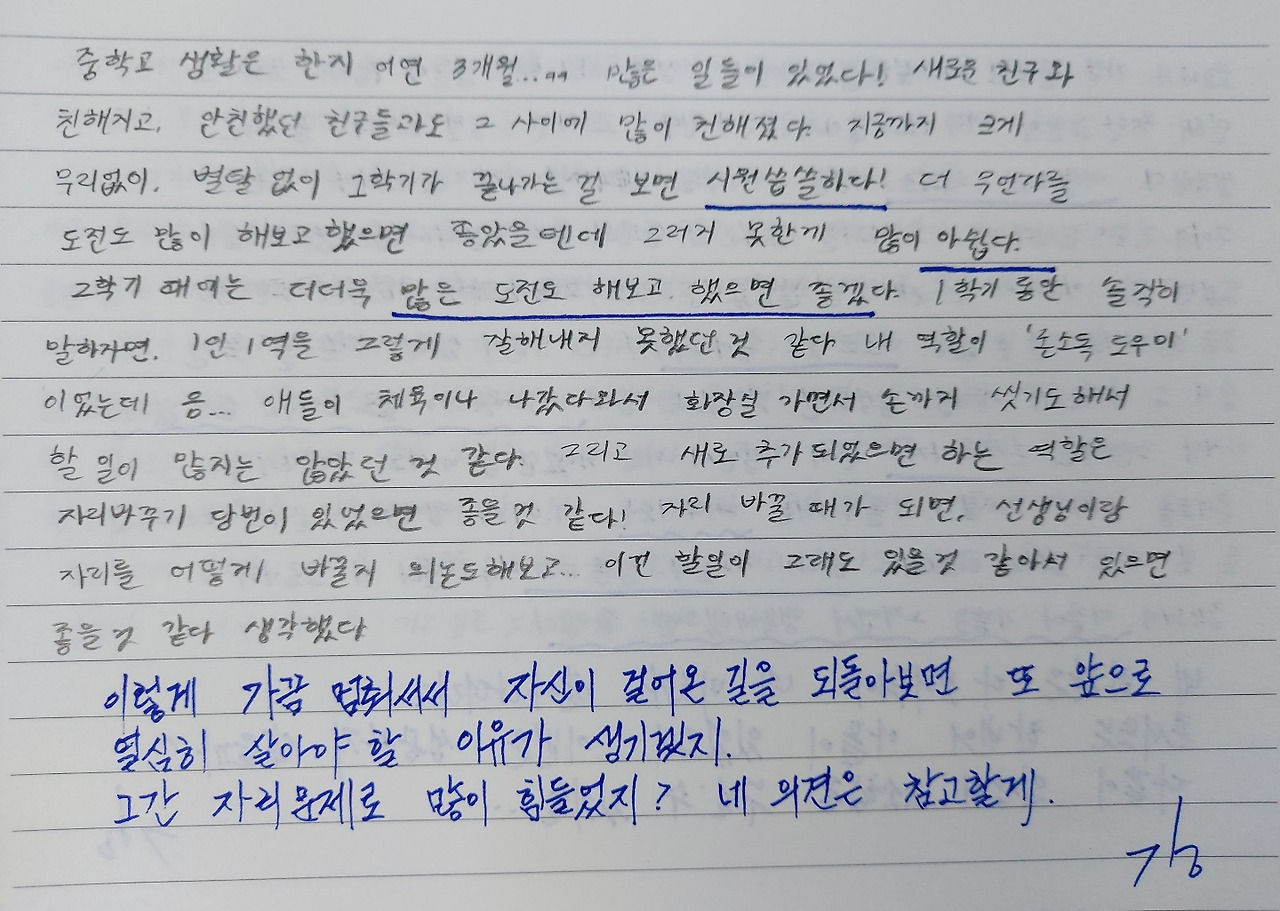 중학교 생활은 한지 어연 3개월..., 많은 일들이 있었다! 새로운 친구와
친해지고, 안친했던 친구들과도 그 사이에 많이 친해졌다. 지금까지 크게
무리없이, 별탈 없이 1학기가 끝나가는 걸 보면 시원씁쓸하다! 더 무언가를
도전도 많이 해보고 했으면 좋았을텐데 그러지 못한게 많이 아쉽다.
2학기 때에는 더더욱 많은 도전도 해보고 했으면 좋겠다. 1학기 동안 솔직히
말하자면, 1인 1역을 그렇게 잘해내지 못했던 것 같다. 내 역할이 '손소독 도우미'
이었는데 음... 애들이 체육이나 나갔다와서 화장실 가면서 손까지 씻기도해서
할 일이 많지는 않았던 것 같다. 그리고 새로 추가되었으면 하는 역할은
자리바꾸기 당번이 있었으면 좋을것 같다! 자리 바꿀 때가 되면, 선생님이랑
자리를 어떻게 바꿀지 의논도해보고... 이건 할일이 그래도 있을것 같아서 있으면
좋을것 같다 생각했다
이렇게 가끔 멈춰서서 자신이 걸어온 길을 되돌아보면 또 앞으로
열심히 살아야 할 이유가 생기겠지.
그간 자리문제로 많이 힘들었지? 네 의견은 참고할게.